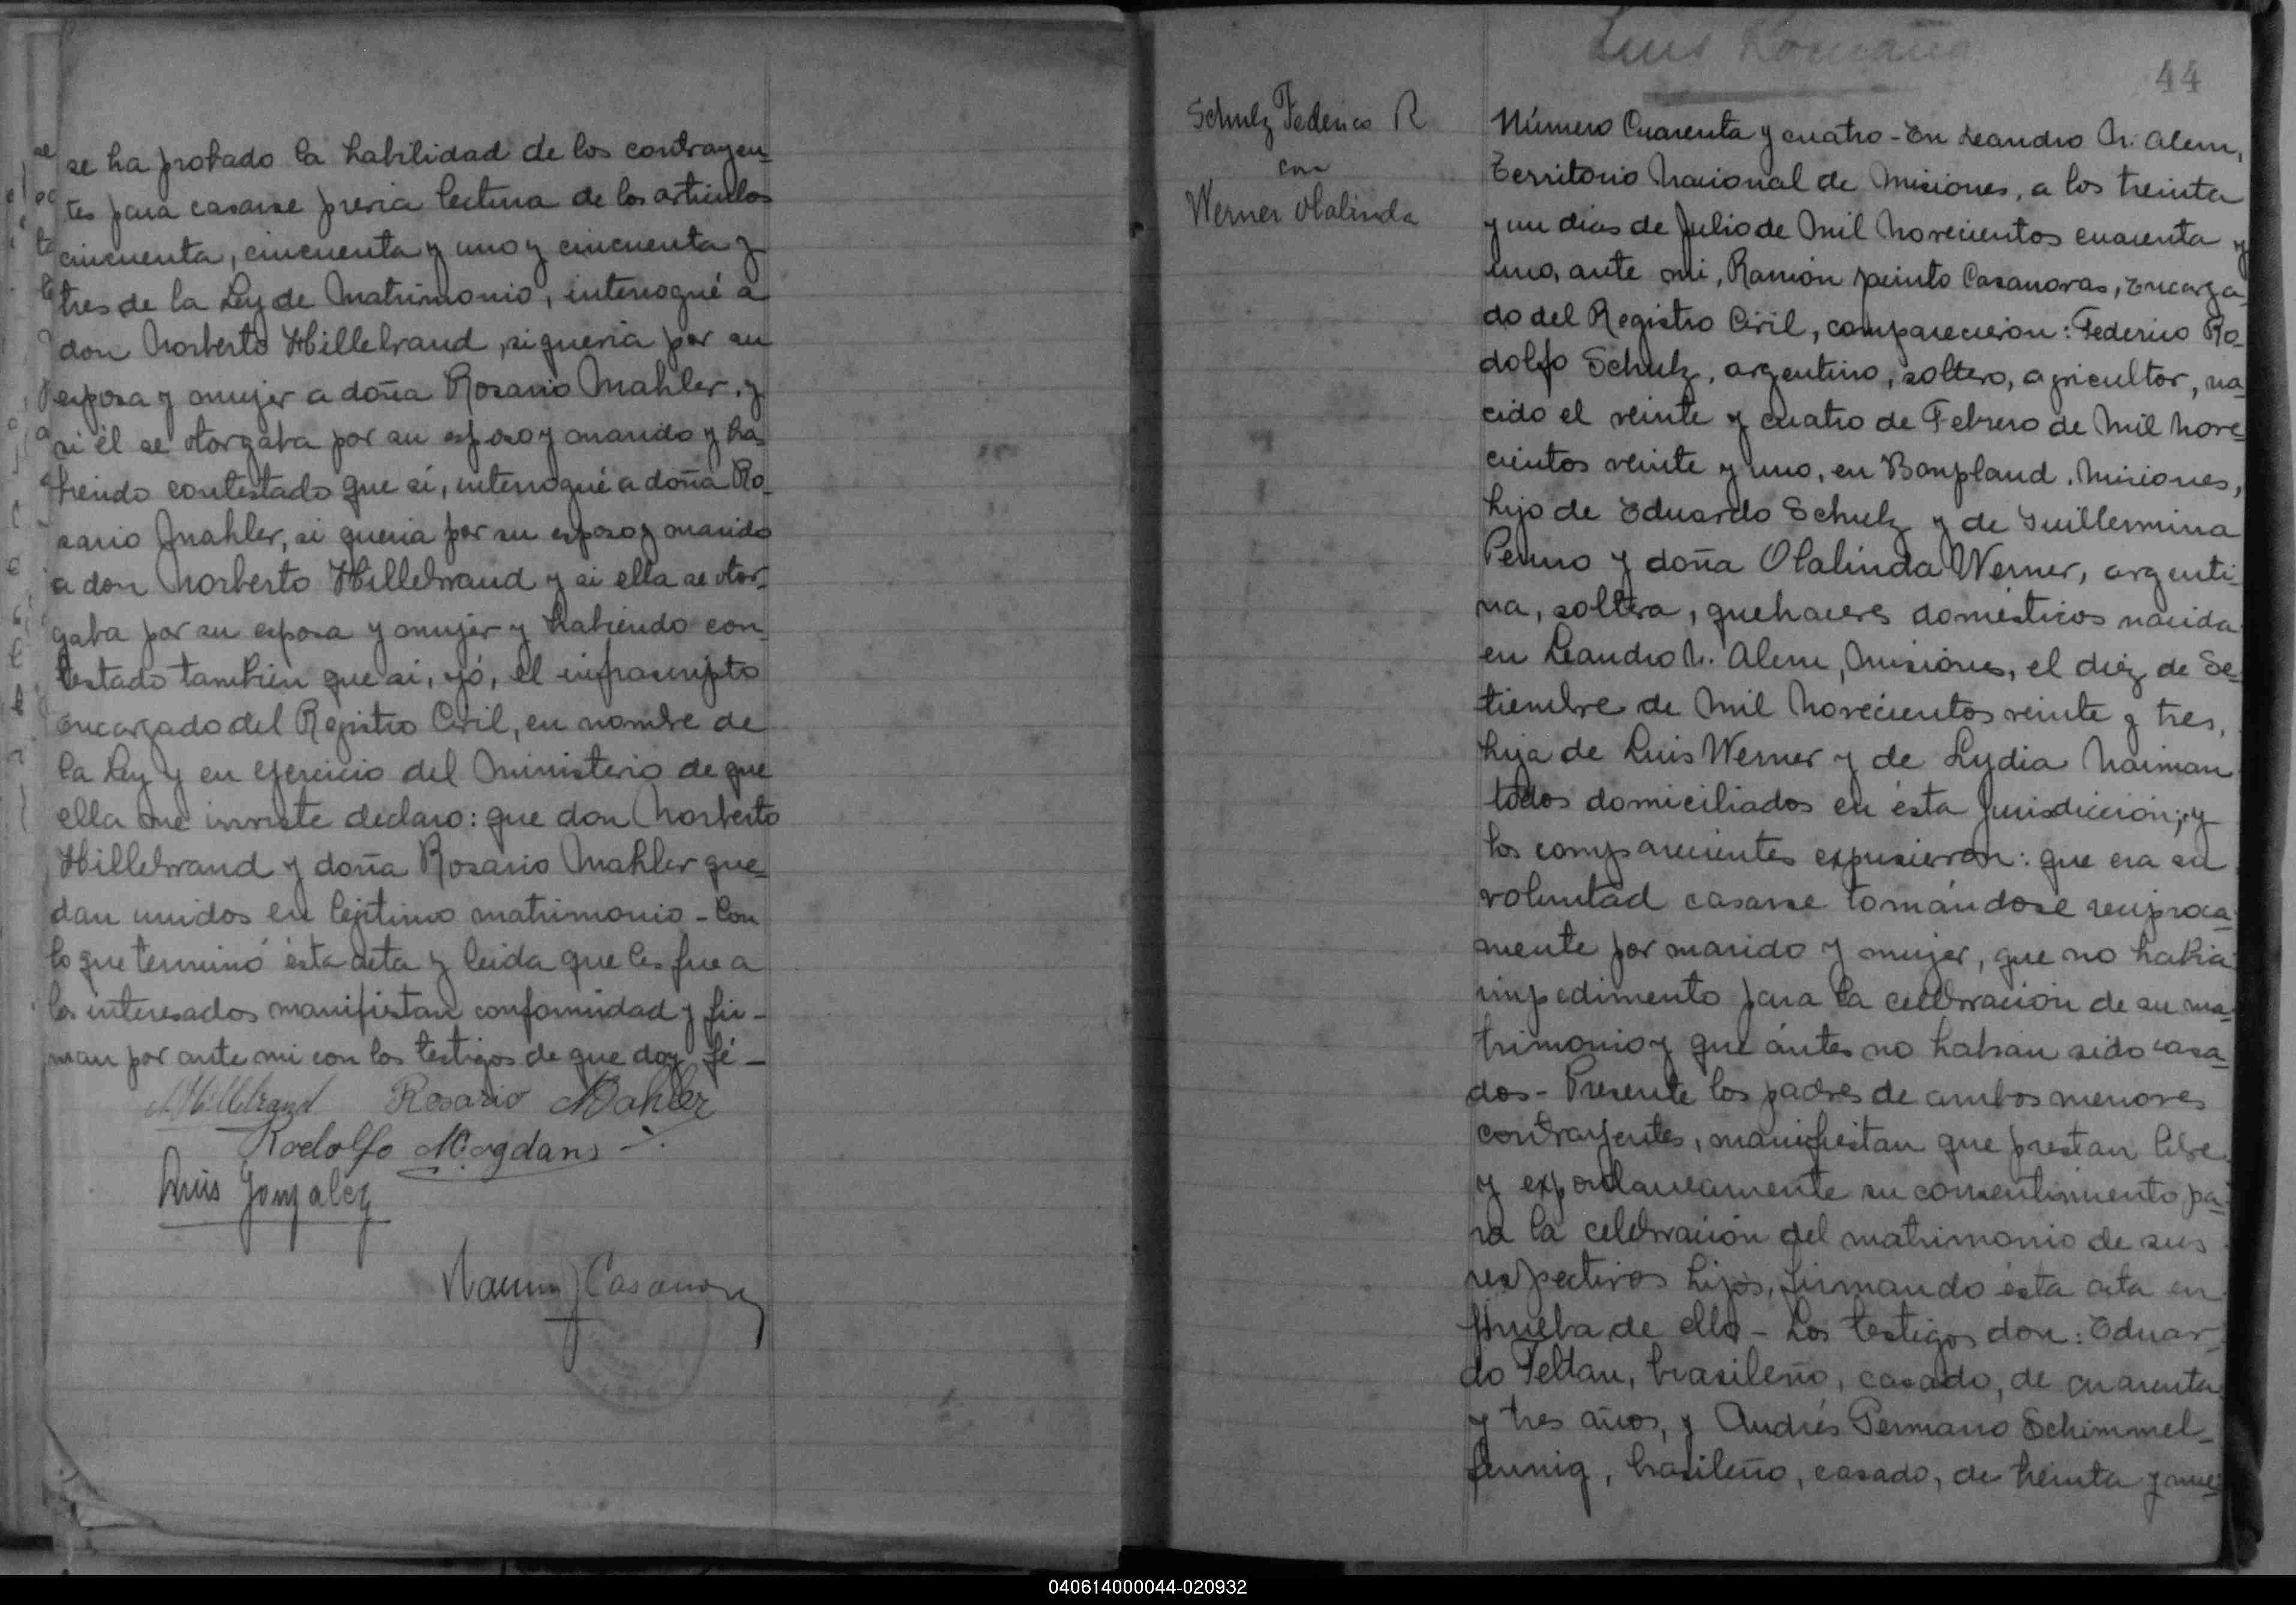 se ha probado la habilidad de los contrayen-
tes para casarse previa lectura de los articulos
cincuenta, cincuenta y uno y cincuenta y
tres de la Ley de Matrimonio, interrogué a
don Norberto Hillebrand, si queria por su
esposa y mujer a doña Rosario Mahler, y
si él se otorgaba por su esposo y marido y ha-
biendo contestado que si, interrogué a doña Ro-
sario Mahler, si queria por su esposo y marido
a don Norberto Hillebrand y si ella se otor-
gaba por su esposa y mujer y habiendo con-
testado tambien que si, yó, el infrascripto
encargado del Registro Civil, en nombre de
la Ley y en ejercicio del Ministerio de que
ella me inviste declaro: que don Norberto
Hillebrand y doña Rosario Mahler que-
dan unidos en lejitimo matrimonio - Con
lo que terminó ésta acta y leida que les fue a
los interesados manifiestan conformidad y fir-
man por ante mi con los testigos de que doy fé -
Hillebrand Rosario Mahler
Rodolfo Mogdans
Luis Gonzalez
Ramon J Casanovas
Luis Romaña
44
Schulz Federico R
con
Werner Olalinda
Número Cuarenta y cuatro - En Leandro N. Alem,
Territorio Nacional de Misiones, a los treinta
y un dias de Julio de Mil Novecientos cuarenta y
uno, ante mi, Ramón Jacinto Casanovas, Encarga-
do del Registro Civil, comparecieron: Federico Ro-
dolfo Schulz, argentino, soltero, agricultor, na-
cido el veinte y cuatro de Febrero de Mil Nove-
cientos veinte y uno, en Bonpland, Misiones,
hijo de Eduardo Schulz y de Guillermina
y doña Olalinda Werner, argenti-
na, soltera, quehaceres domésticos nacida
en Leandro N. Alem, Misiones, el diez de Se-
tiembre de Mil Novecientos veinte y tres,
hija de Luis Werner y de Lydia Naiman
todos domiciliados en ésta jurisdicción; y
los comparecientes expusieron: que era su
voluntad casarse tomándose reciproca-
mente por marido y mujer, que no habia
impedimento para la celebración de su ma-
trimonio y que ántes no habian sido casa-
dos - Presente los padres de ambos menores
contrayentes, manifiestan que prestan libre
y espontaneamente su consentimiento pa-
ra la celebración del matrimonio de sus
respectivos hijos, firmando ésta acta en
prueba de ello - Los testigos don: Eduar-
do Feltan, brasileño, casado, de cuarenta
y tres años, y Andrés Germano Schimmel-
fennig, brasileño, casado, de treinta y nue-
040614000044-020932